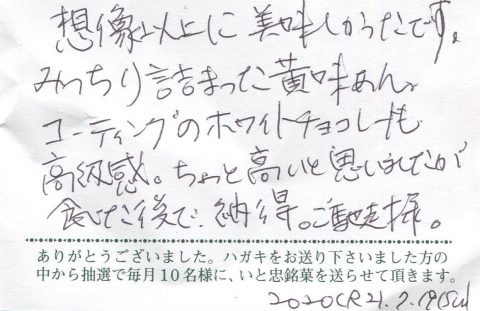 想像以上に美味しかったです。
みっちり詰まった黄味あん、
コーティングのホワイトチョコレートも
高級感。ちょっと高いと思いましたが
食べた後で、納得。ご馳走様。
ありがとうございました。ハガキをお送り下さいました方の
中から抽選で毎月10名様に、いと忠銘菓を送らせて頂きます。
2020(R2).2.19